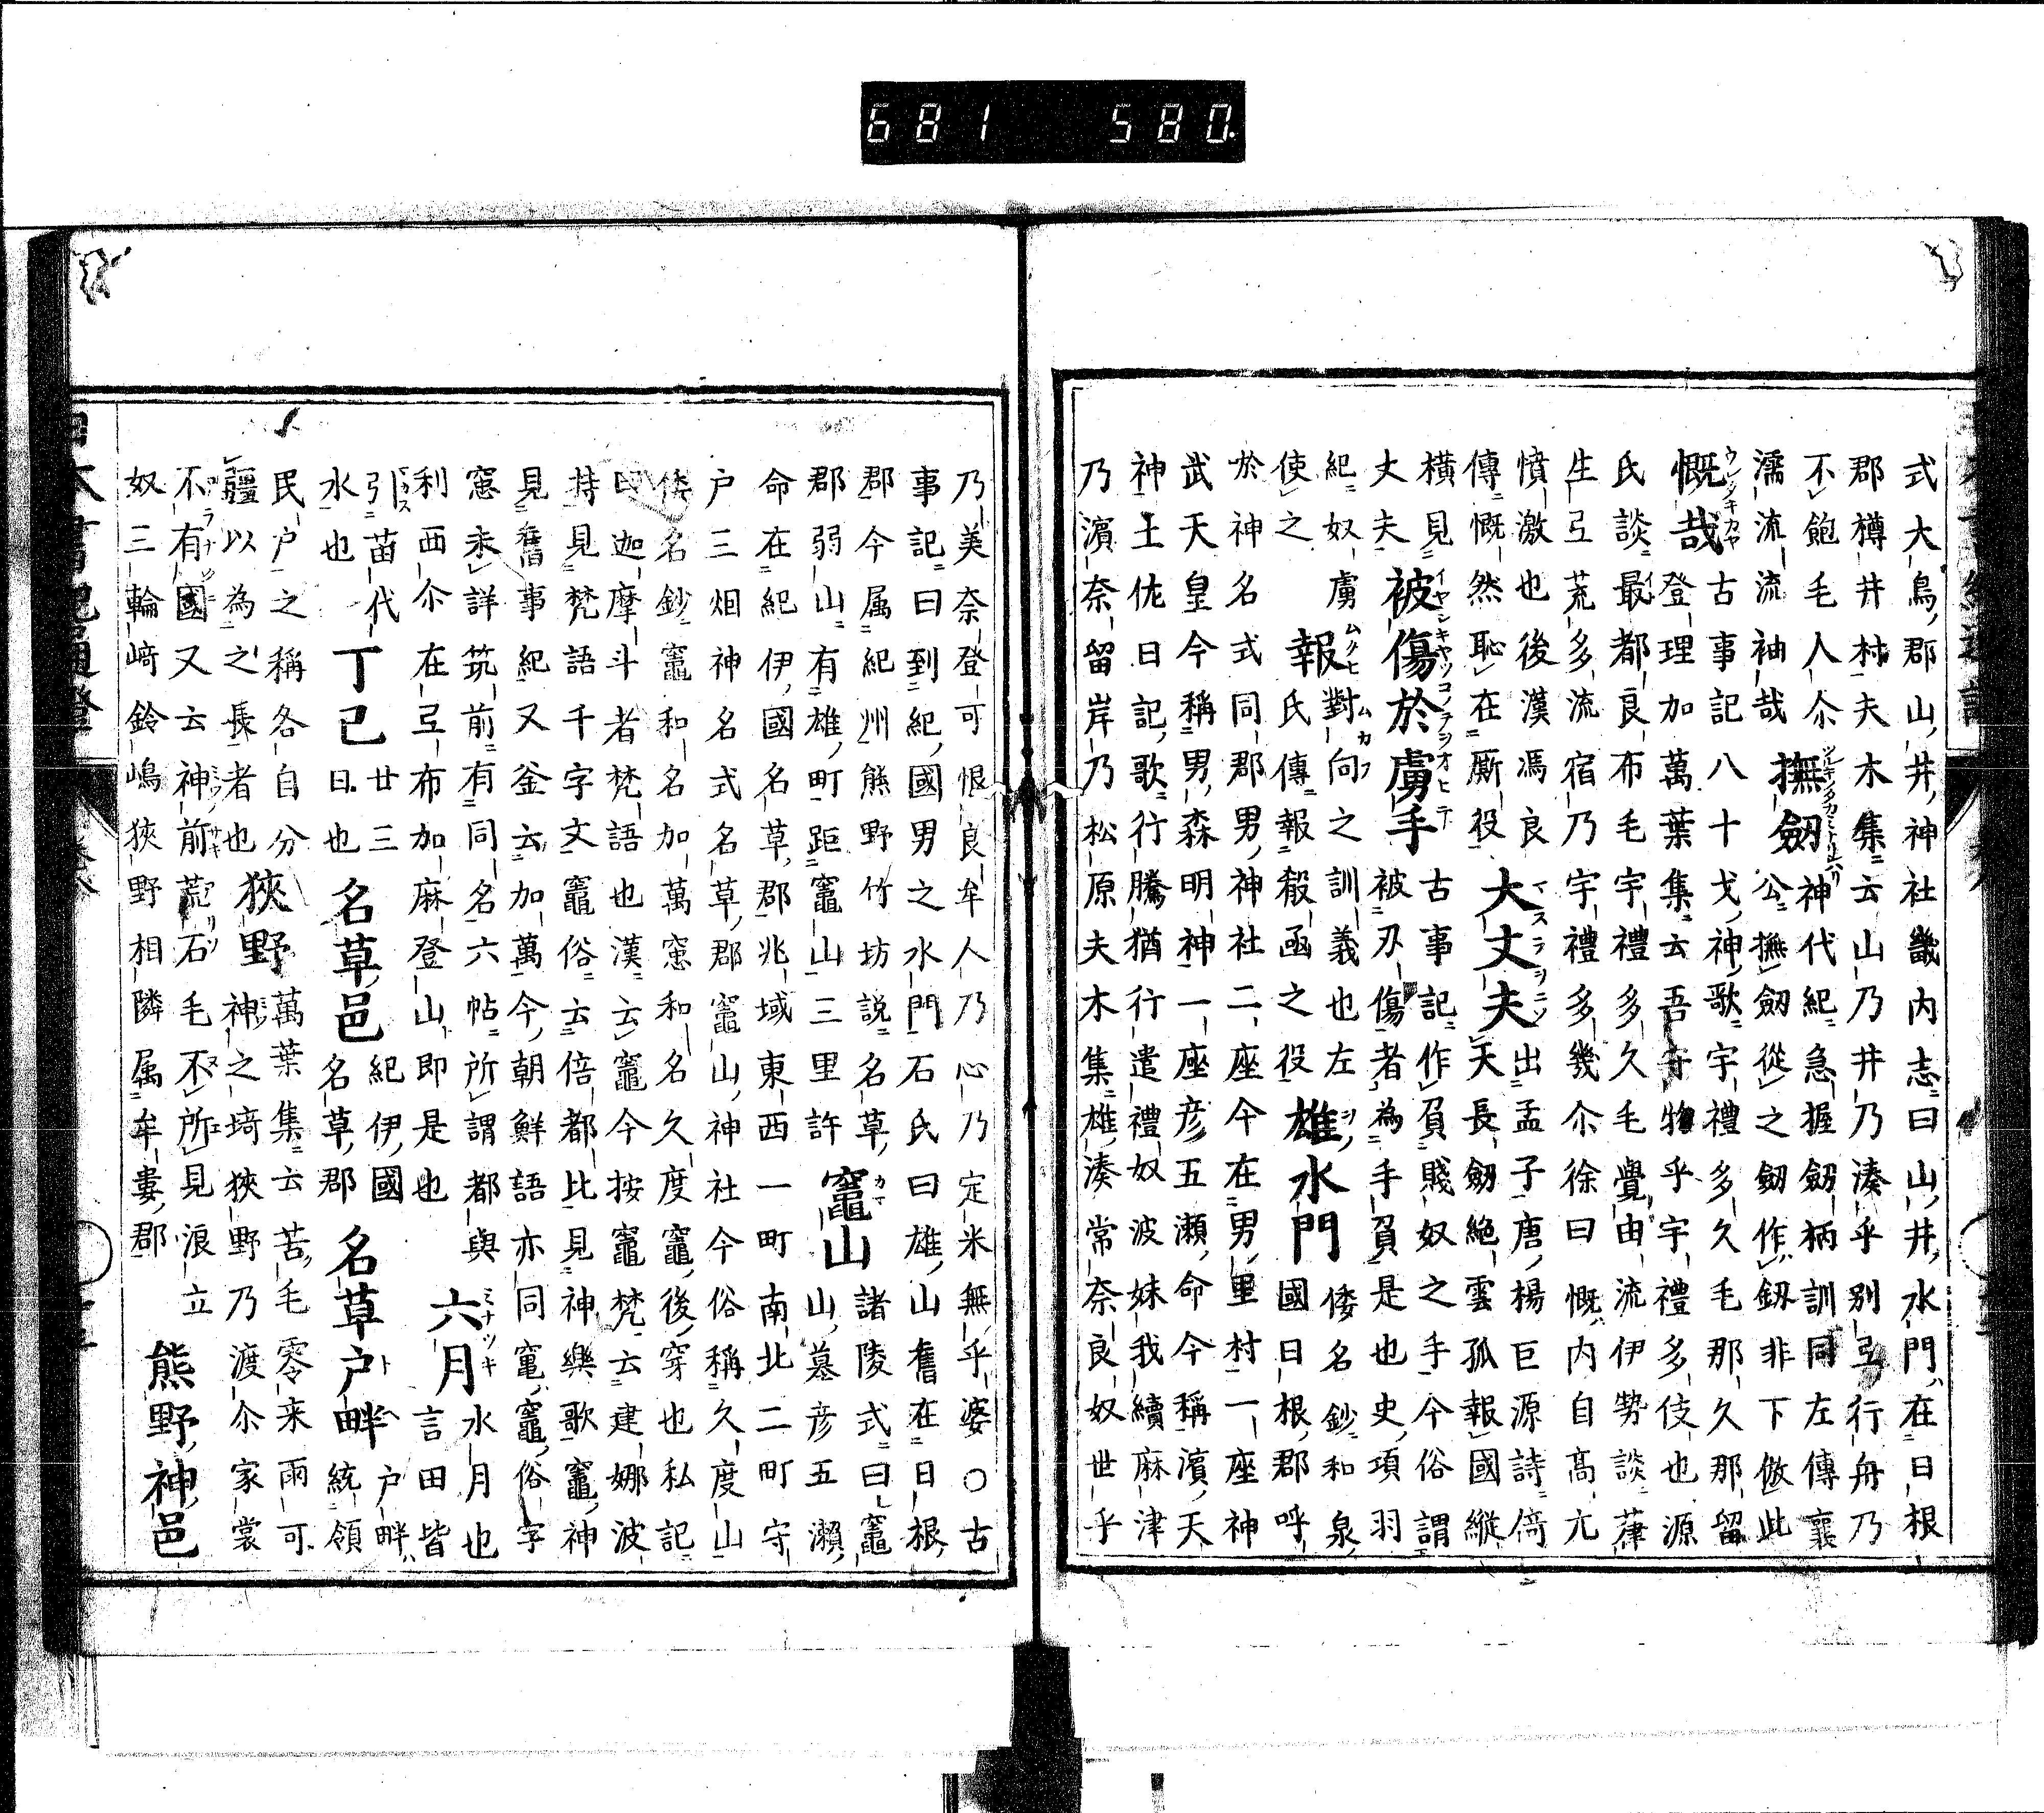 681 580
式大鳥郡山井神社畿内志曰山井水門在日根
郡樽井村夫木集云山乃井乃湊乎別弖行舟乃
不飽毛人尒 撫劔 神代紀急握劔柄訓同左傳襄
濡流流袖哉 公撫劔從之劔作釼非下倣此
慨哉 古事記八十戈神歌宇禮多久毛那久那留
登理加萬葉集云吾守物乎宇禮多伎也源
氏談最都良布毛宇禮多久毛覺由流伊勢談葎
生弖荒多流宿乃宇禮多幾尒徐曰慨内自高亢
憤激也後漢馮良 大丈夫 出孟子唐楊巨源詩倚
傳慨然恥在厮役 天長劔絶雲孤報國縱
横見 被傷於虜手 古事記作負賤奴之手今俗謂
丈夫 被刃傷者為手負是也史項羽
紀奴虜 報 對向之訓義也左 雄水門 倭名鈔和泉
使之 氏傳報殺函之役 國日根郡呼
於神名式同郡男神社二座今在男里村一座神
武天皇今稱男森明神一座彦五瀬命今稱濱天
神土佐日記歌行騰猶行遣禮奴波妹我續麻津
乃濱奈留岸乃松原夫木集雄湊常奈良奴世乎
乃美奈登可恨良牟人乃心乃定米無乎婆○古
事記曰到紀國男之水門石氏曰雄山舊在日根
郡今属紀州熊野竹坊説名草 竈山 諸陵式曰竈
郡弱山有雄町距竈山三里許 山墓彦五瀬
命在紀伊國名草郡兆域東西一町南北二町守
戸三烟神名式名草郡竈山神社今俗稱久度山
倭名鈔竈和名加萬窓和名久度竈後穿也私記
曰迦摩斗者梵語也漢云竈今按竈梵云建娜波
持見梵語千字文竈俗云倍都比見神樂歌竈神
見舊事紀又釜云加萬今朝鮮語亦同竃竈俗字
窓未詳筑前有同名六帖所謂都與 六月 水月也
利西尒在弖布加麻登山即是也 言田皆
引苗代 丁巳 廿三 名草邑 紀伊國 名草戸畔 戸畔
水也 日也 名草郡 統領
民戸之稱各自分 狹野 萬葉集云苦毛零来雨可
疆以為之長者也 神之埼狹野乃渡尒家裳
不有國又云神前荒石毛不所見浪立 熊野神邑
奴三輪﨑鈴嶋狹野相隣属牟婁郡